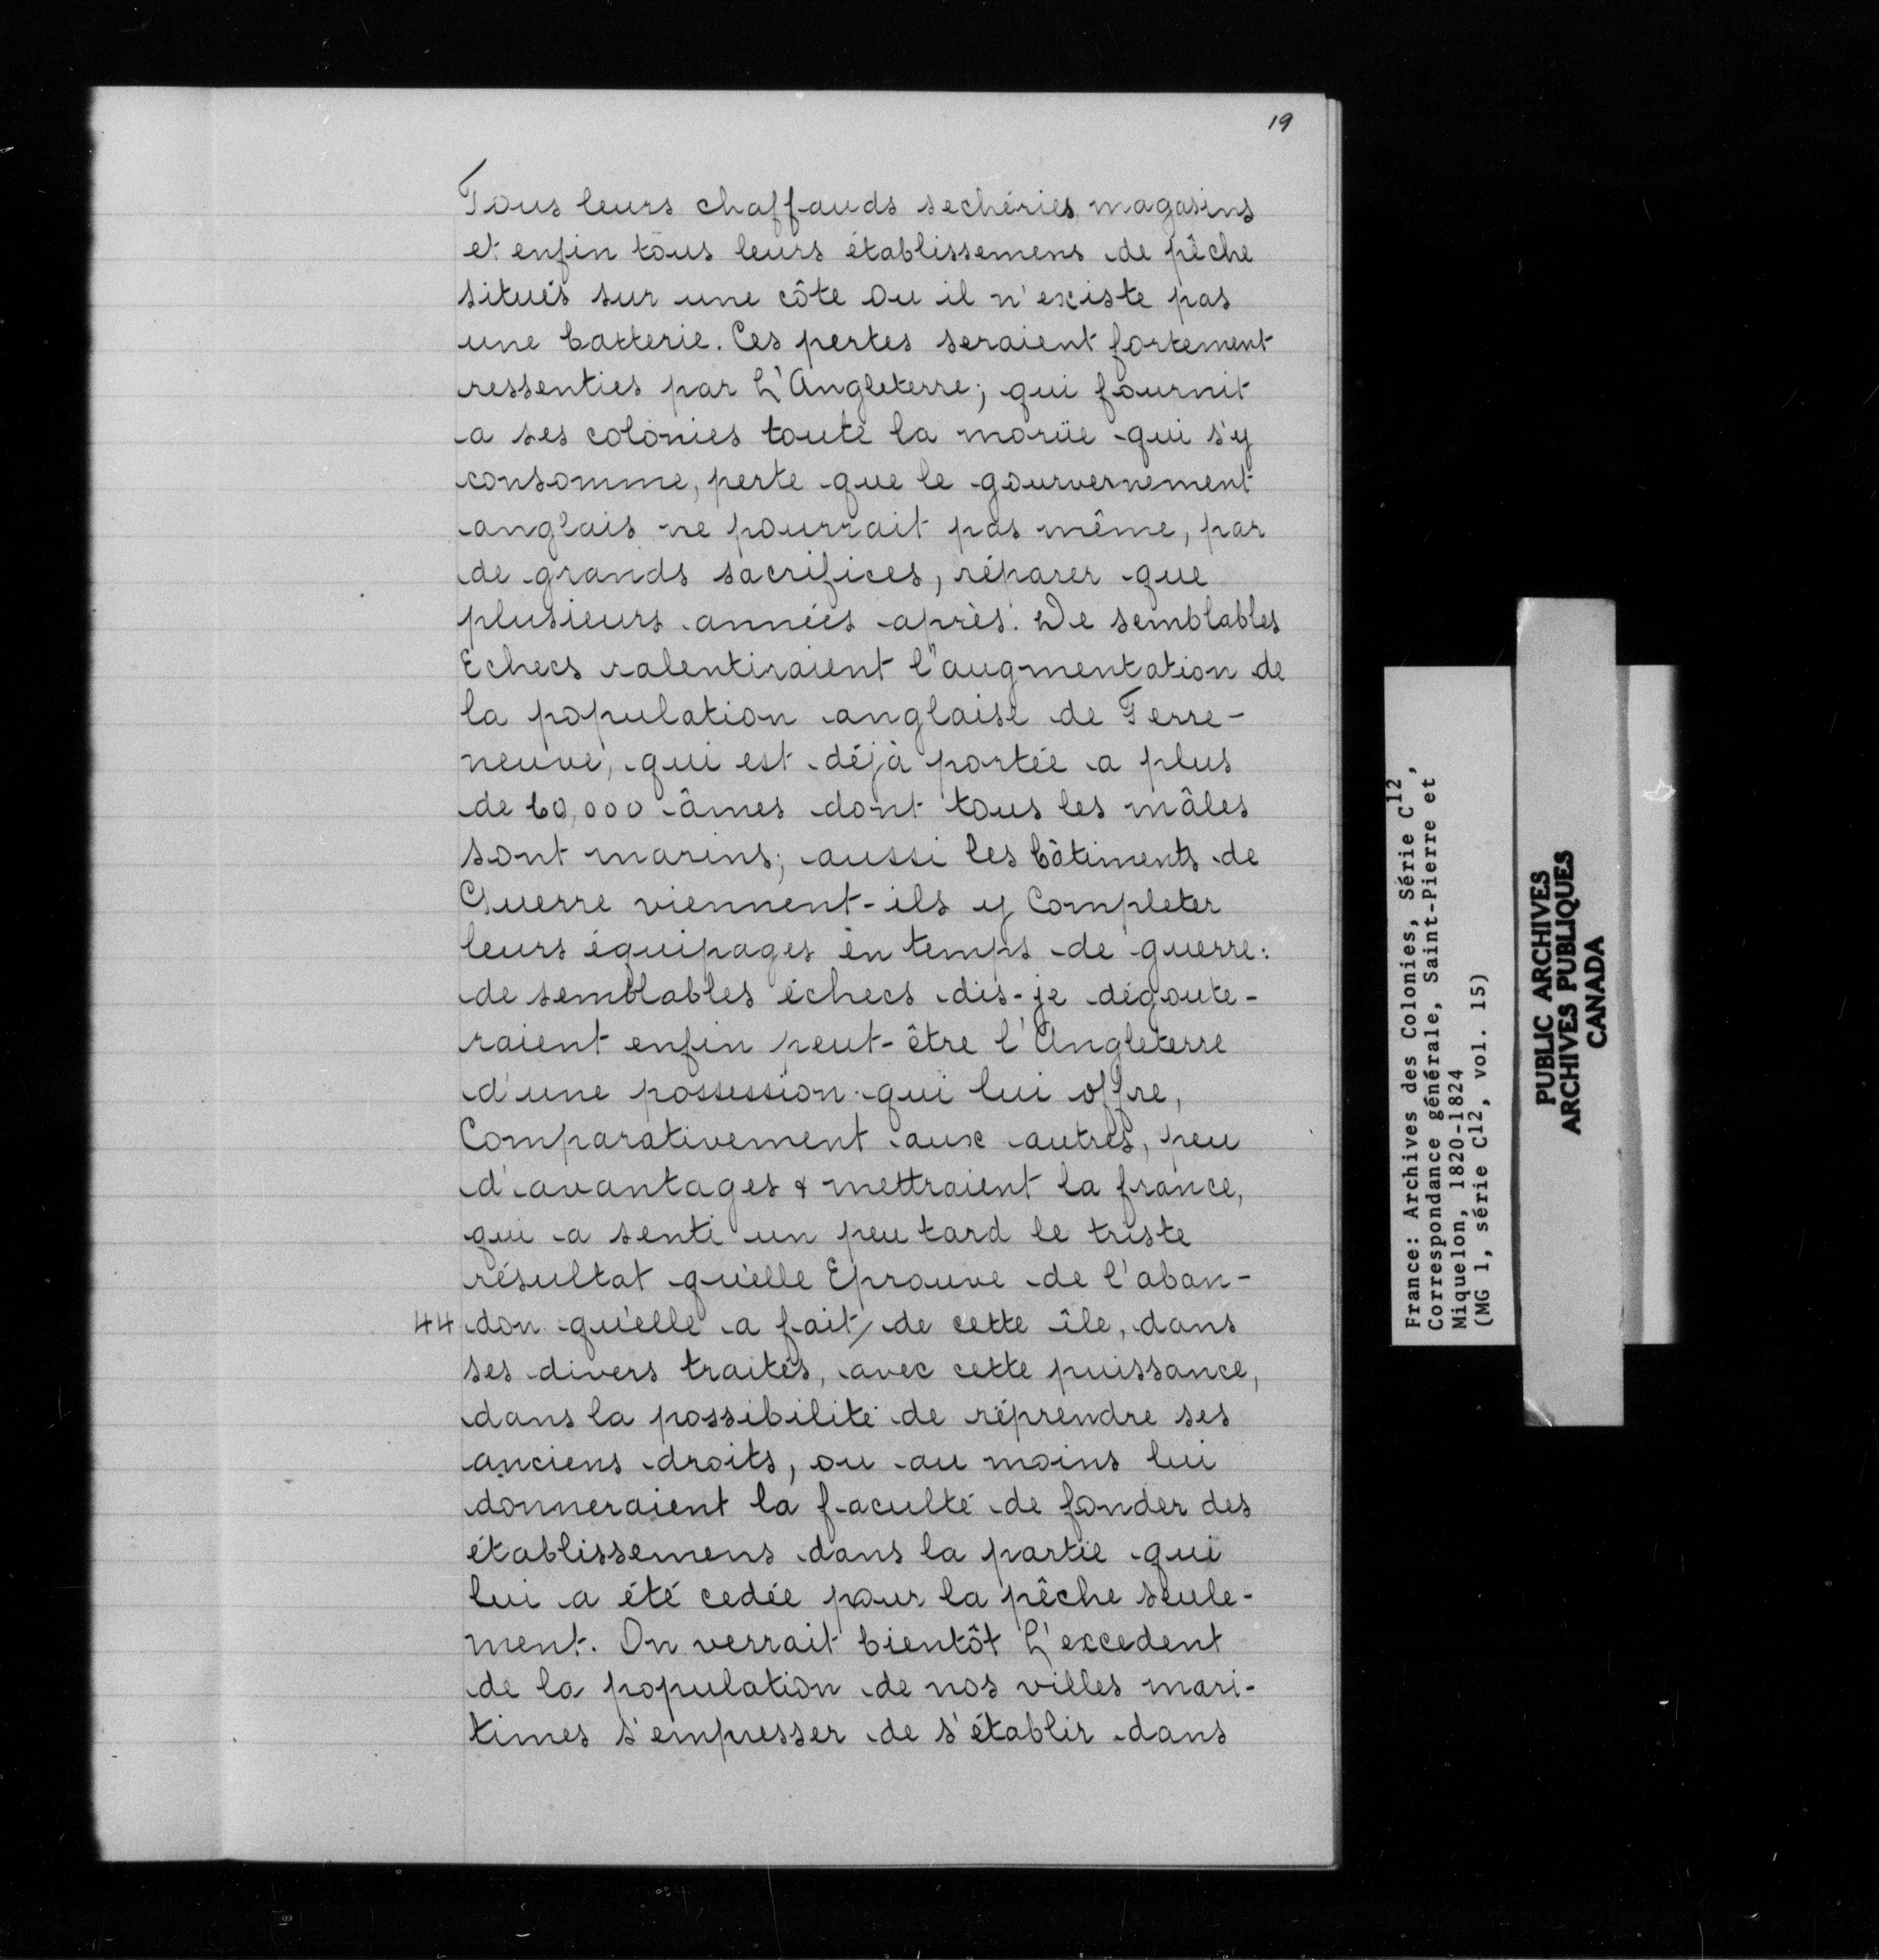 19
Tous leurs chaffauds sechéries magasins
et enfin tous leurs établissemens de pêche
situés sur une côte ou il n'existe pas
une batterie. Ces pertes seraient fortement
ressenties par L'Angleterre; qui fournit
a ses colonies toute la morüe qui s'y
consomme, perte que le gourvernement
anglais ne pourrait pas même, par
de grands sacrifices, réparer que
plusieurs années après. De semblables
Echecs ralentiraient l'augmentation de
la population anglaise de Terre-
neuve, qui est déjà portée a plus
de 60,000 âmes dont tous les mâles
sont marins; aussi les bâtiments de
Guerre viennent-ils y Completer
leurs équipages en temps de guerre:
de semblables échecs dis-je dégoute-
raient enfin peut-être l'Angleterre
d'une possession qui lui offre,
Comparativement aux autres, peu
d'avantages & mettraient la france,
qui a senti un peu tard le triste
résultat qu'elle Eprouve de l'aban-
44 don qu'elle a fait/ de cette île, dans
ses divers traités, avec cette puissance,
dans la possibilité de réprendre ses
anciens droits, ou au moins lui
donneraient la faculté de fonder des
établissemens dans la partie qui
lui a été cedée pour la pêche seule-
ment. On verrait bientôt L'excedent
de la population de nos villes mari-
times s'empresser de s'établir dans
France: Archives des Colonies, Série C12,
Correspondance générale, Saint-Pierre et
Miquelon, 1820-1824
(MG 1, série C12, vol. 15)
PUBLIC ARCHIVES
ARCHIVES PUBLIQUES
CANADA